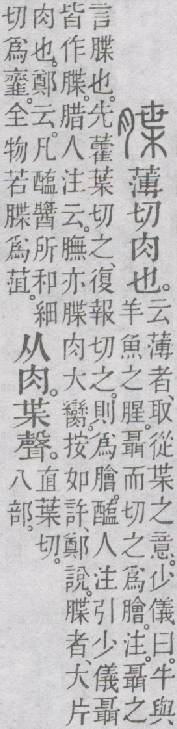 䐑
薄切肉也。
云薄者、取從枼之意。少儀曰。牛與
羊魚之腥。聶而切之爲膾。注。聶之
言䐑也。先藿葉切之、復報切之。則爲膾。醢人注引少儀聶
皆作䐑。腊人注云。膴亦䐑肉大臠。按如許、鄭說。䐑者、大片
肉也。鄭云。凡醢醬所和細
切爲齏。全物若䐑爲菹。
从肉。枼聲。
直葉切。
八部。